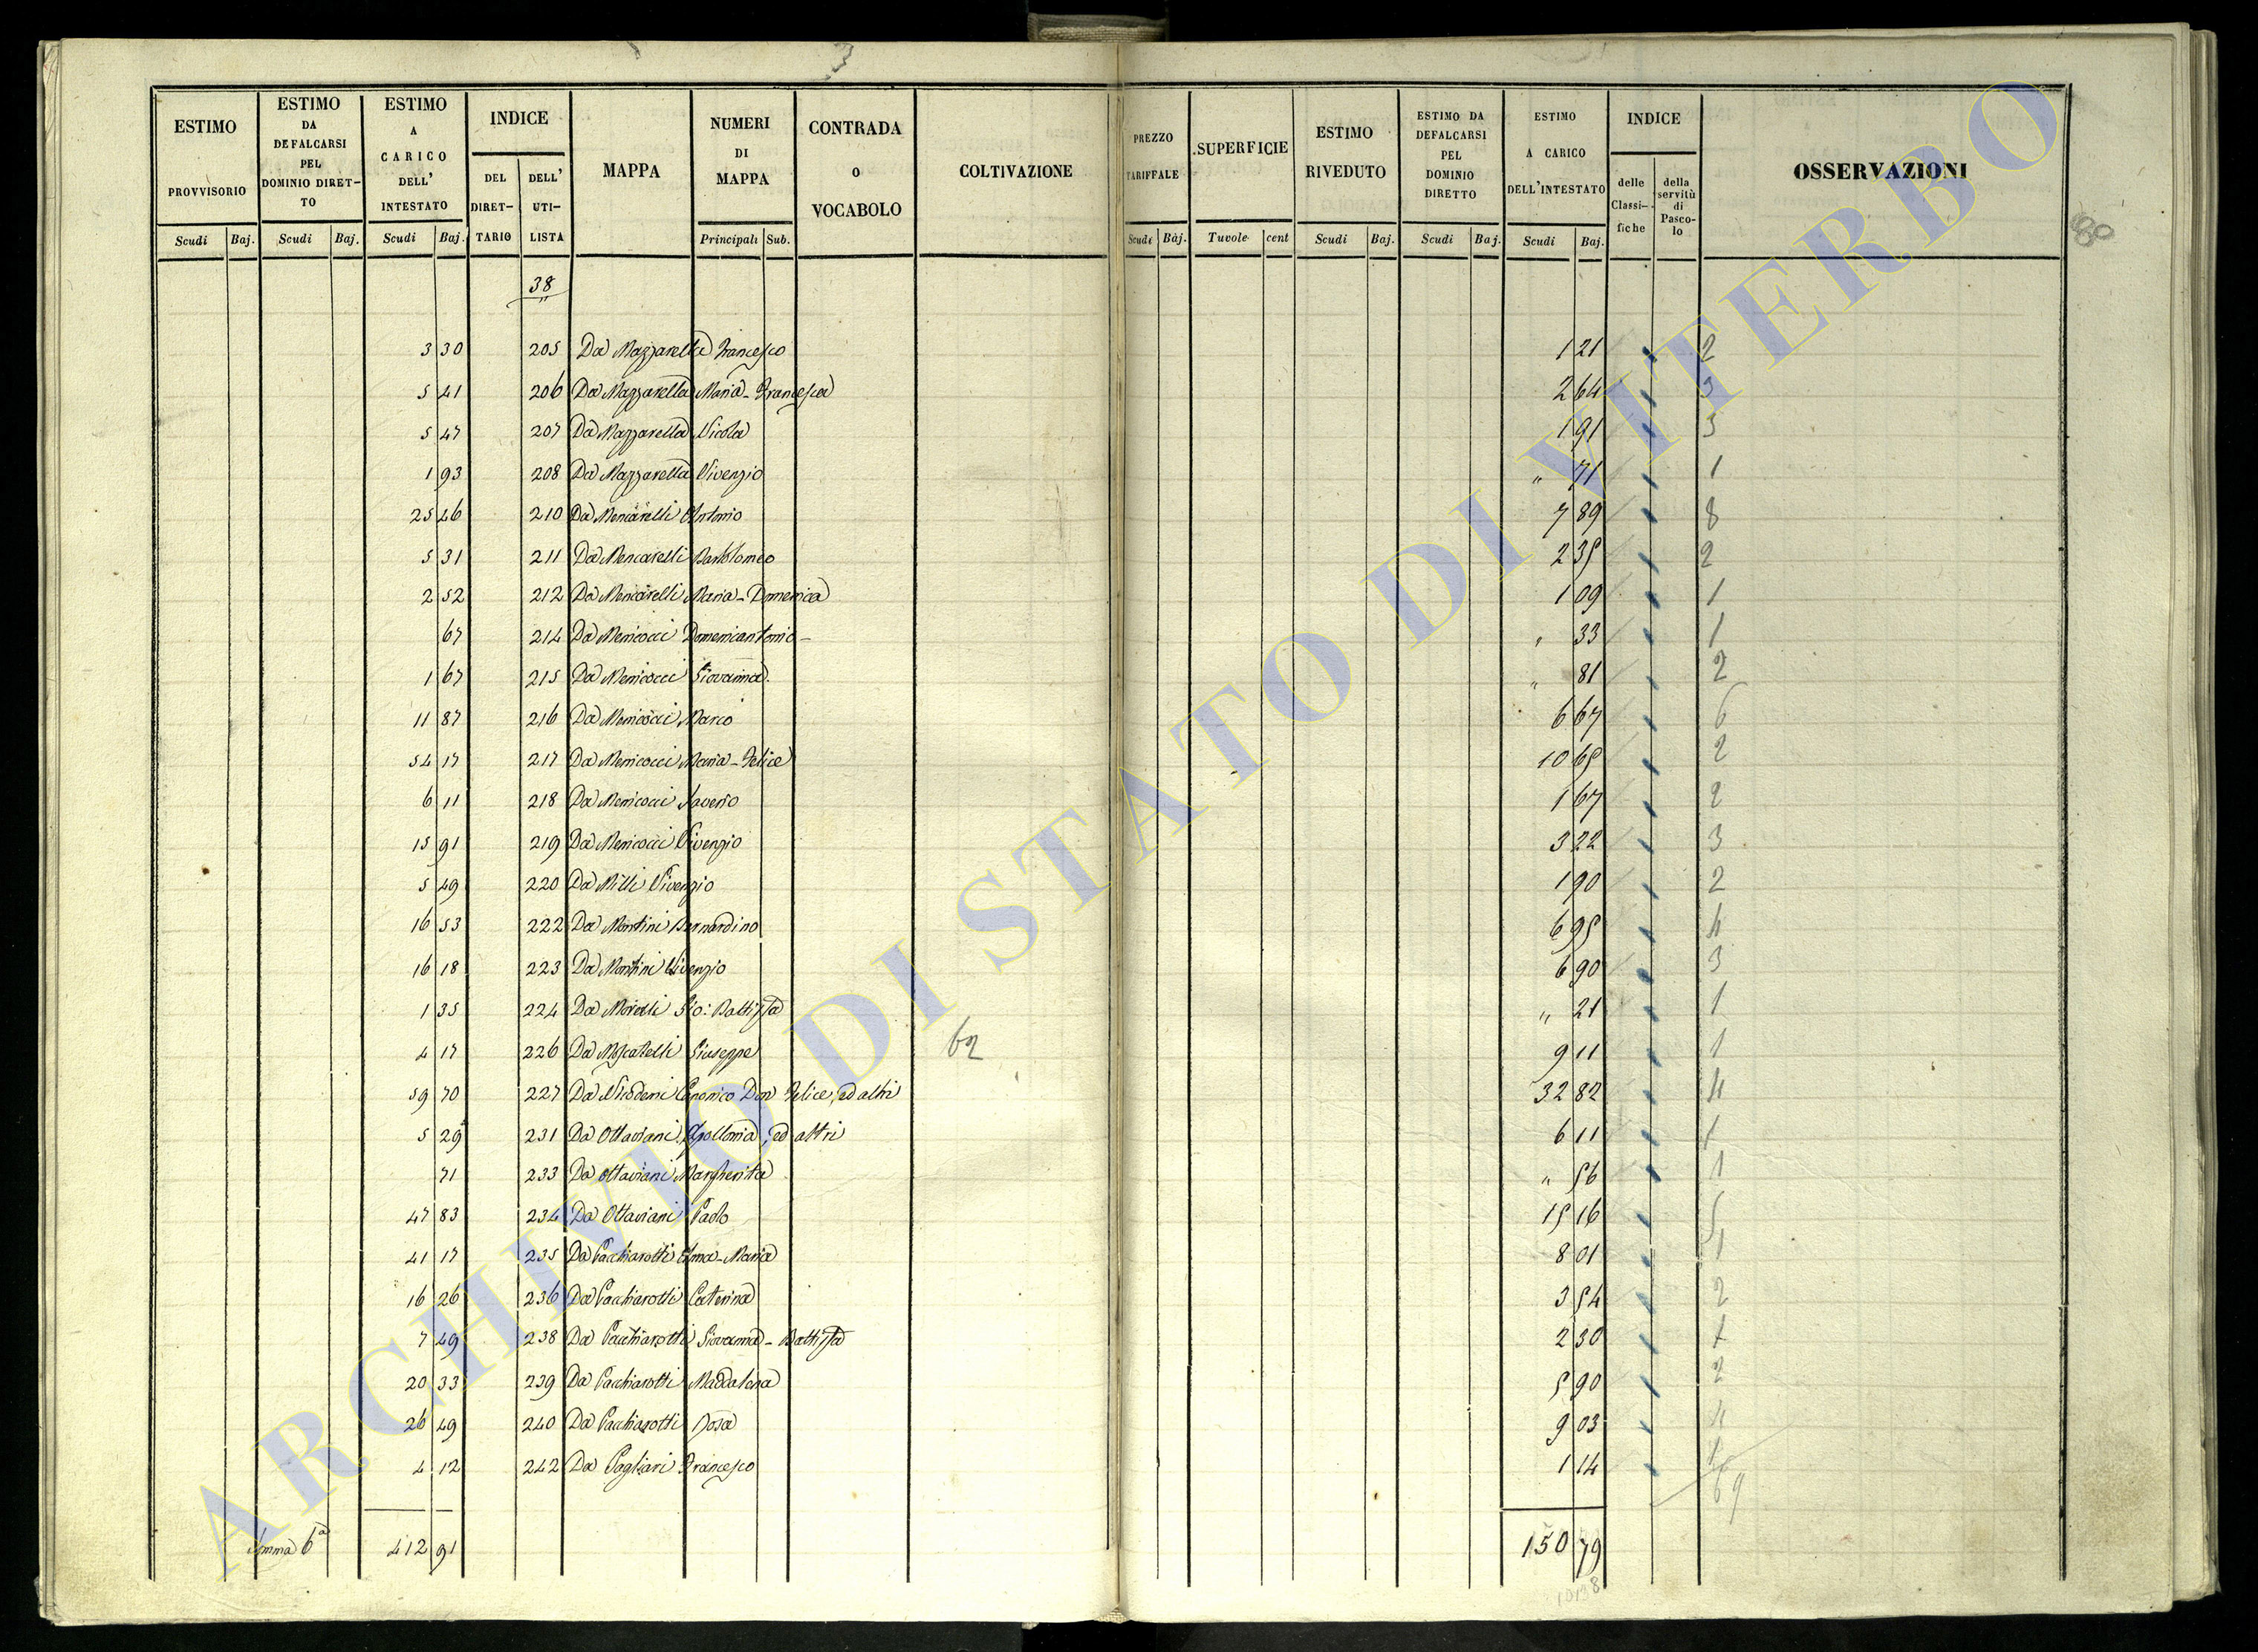 3
ESTIMO PROVVISORIO Scudi Baj.
ESTIMO DA DEFALCARSI PEL DOMINIO DIRET-TO Scudi Baj.
ESTIMO A CARICO DELL' INTESTATO Scudi Baj.
INDICE DEL DIRET-TARIO DELL' UTI-LISTA
MAPPA
NUMERI DI MAPPA Principali Sub.
CONTRADA o VOCABOLO
COLTIVAZIONE
PREZZO TARIFFALE Scudi Baj.
SUPERFICIE Tavole cent
ESTIMO RIVEDUTO Scudi Baj.
ESTIMO DA DEFALCARSI PEL DOMINIO DIRETTO Scudi Baj.
ESTIMO A CARICO DELL'INTESTATO Scudi Baj.
INDICE delle Classi-fiche della servitù di Pasco-lo
OSSERVAZIONI
80
38
3 30 205 Da Mazzarella Francesco 1 21 2
5 41 206 Da Mazzarella Maria-Francesca 2 64 3
5 47 207 Da Mazzarella Nicola 1 91 3
1 93 208 Da Mazzarella Vivenzio " 71 1
25 46 210 Da Mencarelli Antonio 7 89 8
5 31 211 Da Mencarelli Bartolomeo 2 35 2
2 52 212 Da Mencarelli Maria-Domenica 1 09 1
67 214 Da Menicocci Domenicantonio " 33 1
1 67 215 Da Menicocci Giovanna " 81 2
11 87 216 Da Menicocci Marco 6 67 6
54 17 217 Da Menicocci Maria-Felice 10 65 2
6 11 218 Da Menicocci Saverio 1 67 2
15 91 219 Da Menicocci Vivenzio 3 22 3
5 49 220 Da Milli Vivenzio 1 90 2
16 53 222 Da Montini Bernardino 6 95 4
16 18 223 Da Montini Vivenzio 6 90 3
1 35 224 Da Morelli Gio: Battista " 21 1
4 17 226 Da Moscatelli Giuseppe 62 9 11 1
59 70 227 Da Nicodemi Canonico Don Felice, ed altri 32 82 4
5 29 231 Da Ottaviani Apollonia, ed altri 6 11 1
71 233 Da Ottaviani Margherita " 56 1
47 83 234 Da Ottaviani Paolo 15 16 5
41 17 235 Da Pacchiarotti Anna-Maria 8 01 1
16 26 236 Da Pacchiarotti Caterina 3 54 2
7 49 238 Da Pacchiarotti Giovanna-Battista 2 30 1
20 33 239 Da Pacchiarotti Maddalena 5 90 2
26 49 240 Da Pacchiarotti Rosa 9 03 4
4 12 242 Da Pagliari Francesco 1 14 1
69
Somma 6ª 412 91 150 79
ARCHIVIO DI STATO DI VITERBO